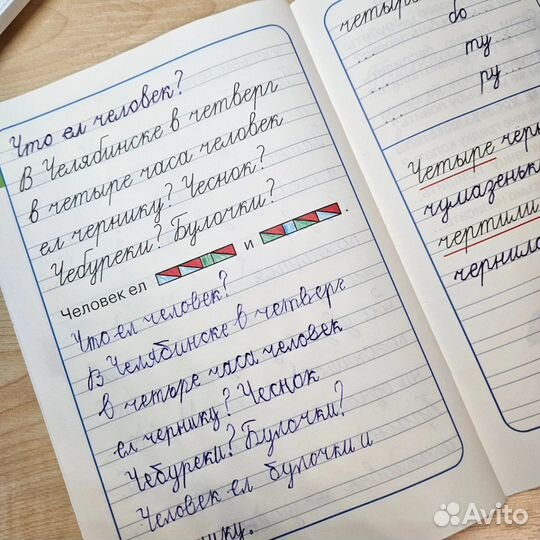 Что ел человек?
В Челябинске в четверг
в четыре часа человек
ел чернику? Чеснок?
Чебуреки? Булочки?
Человек ел и .
Что ел человек?
В Челябинске в четверг
в четыре часа человек
ел чернику? Чеснок
Чебуреки? Булочки?
Человек ел булочки и
бо ...
... ту ...
... ру ...
Четыре
чертили
Avito